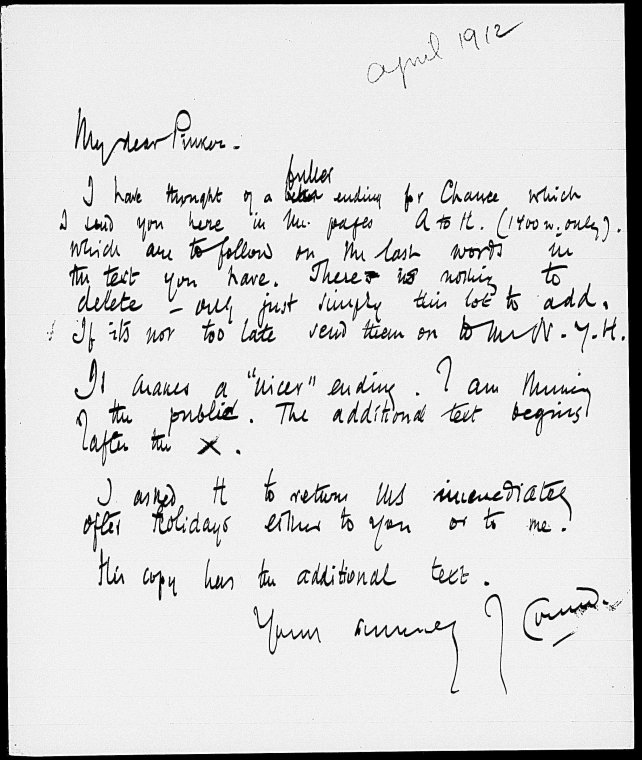 April 1912
My dear Pinker.
fuller
I have thought of a ending for Chance which
I send you here in the pages A to H. (1400 w. only).
which are to follow on the last words in
the text you have. There is nothing to
delete – only just simply this lot to add.
If its not too late send them on to the N. Y. H.
It makes a "nicer" ending. I am thinking
of the public. The additional text begins
after the X.
I asked H to return MS immediately
after holidays either to you or to me.
His copy has the additional text.
Yours J Conrad.